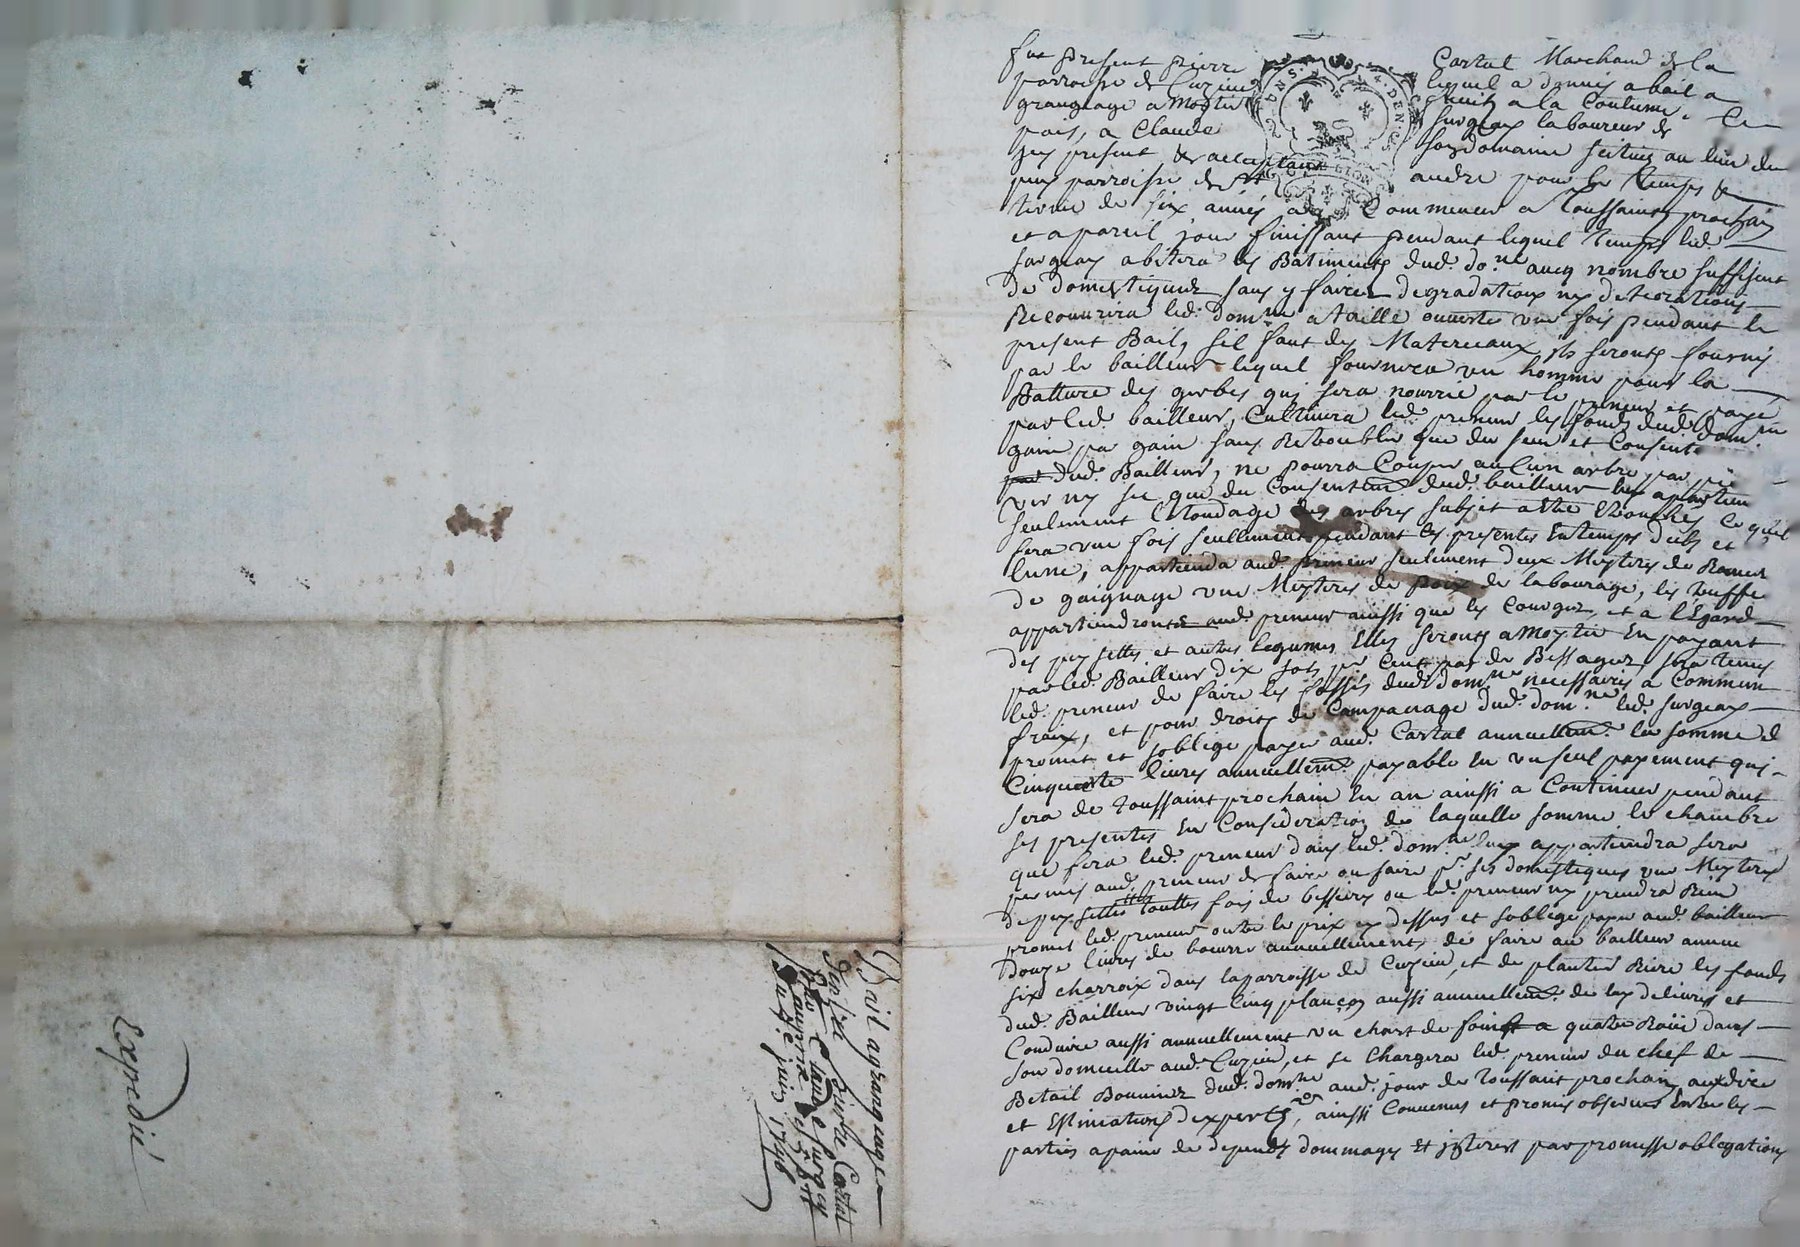 fut present pierre Cartal Marchand de la
parroisse de Cuzieu lequel a donnés a bail a
grangeage a Moytié fruit a la Coutume Ce
païs, a Claude Surgeay laboureur de
icy present & acceptant son domaine scitué au lieu du
puy parroisse de St andre pour le temps &
terme de six années a Commencer a Toussaint prochain
et a pareil jour finissant pendant lequel temps led.
surgeay abitera les Batiments dud. do.ne avec nombre suffisent
de domestiques sans y faires degradations ny deteorations
Recouvrira led. domne a taille ouverte une fois pendant le
present Bail, sil faut des Matereaux ils seronts fournis
par le bailleur lequel fournira un homme pour la
Batture des gerbes qui sera nourrie par le preneur et payé
par led. bailleur, Cultivera led. preneur les fonds dud. dom.ne
gain par gain sans Retroubler que du seu et Consente
dud. Bailleur, ne pourra Couper aucun arbre par pié
ver ny sec que du Consentemt dud. bailleur
seulement Elondage des arbres subjet a être Ebranchés Ce quil
fera une fois seullement pendant les presentes En temps dub et
lune, appartiendra aud. preneur seulement deux Meyteres de
de gaignage une Meyteres de poix de labourage, les truffe
appartiendronts aud. preneur ainssi que les Courges, et a l'Egard
des peysettes et autres legumes Elles seronts a Moytié En payant
par led. Bailleur dix sols pr Cent pas de Bessages, sera tenus
led. preneur de faire les fossés dud. domne necessaires a Commun
fraix, et pour droits de Campanage dud. dom.ne led. surgeay
promet et soblige payer aud. Cartal annuellemt la somme de
Cinquante livres annuellemt payable En un seul payement qui
sera de toussaint prochain En an ainssi a Continuer pendant
les presentes En Consideration de laquelle somme le chambre
que fera led. preneur dans led. domne luy appartiendra sera
permis aud. preneur de faire ou faire pr ses domestiques une Meyteres
de peysettes touttes fois de bessieres ou led. preneur ny prendra Rien
promet led. preneur outre le prix cy dessus et soblige payer aud. bailleur
douze livres de beurre annuellement, de faire au bailleur annue
six charroix dans la parroisse de Cuzieu, et de planter Riere les fonds
dud. Bailleur vingt Cinq plançon aussi annuellemt de luy delivrer et
Conduire aussi annuellement un chart de foin a quatre Raüe dans
son domicille aud. Cuzieu, et se Chargera led. preneur du chef de
Betail Bouvines dud. domne aud. jour de Toussaint prochain aux dire
et Estimations dexperts, ainssi Convenus et promis observer Entre les
parties a paine de depends dommages Et jnterest par promesse obligations
Bail a grangeage
Sieur pierre Cartal
Claude Surgey
juin 1748
Expedié